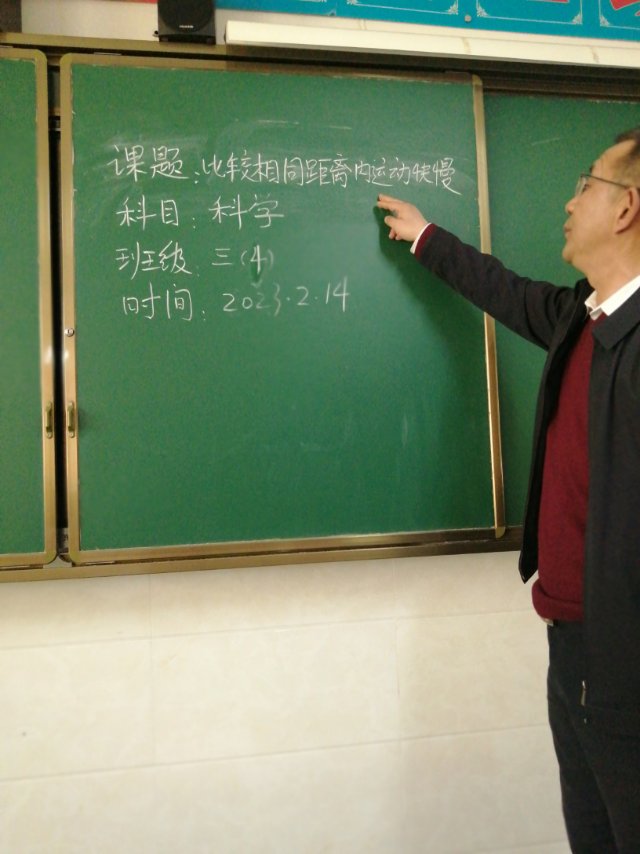 课题:比较相同距离内运动快慢
科目:科学
班级:三(4)
时间:2023.2.14